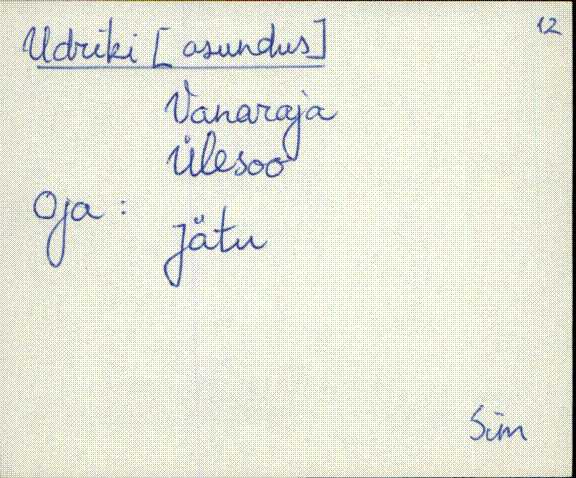 12
Udriki [asundus]
Vanaraja
Ülesoo
Oja :
Jätu
Sim